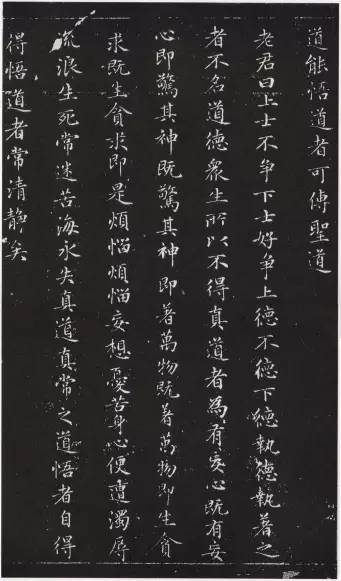 道能悟道者可傳聖道
老君曰上士不爭下士好爭上德不德下德執德執著之
者不名道德衆生所以不得真道者為有妄心既有妄
心即驚其神既驚其神即著萬物既著萬物即生貪
求既生貪求即是煩惱煩惱妄想憂苦身心便遭濁辱
流浪生死常迷苦海永失真道真常之道悟者自得
得悟道者常清靜矣